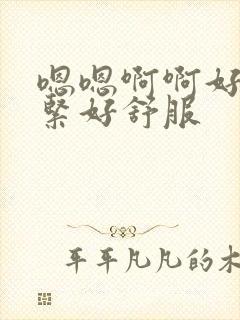 嗯嗯啊啊好
紧好舒服
平平凡凡的木